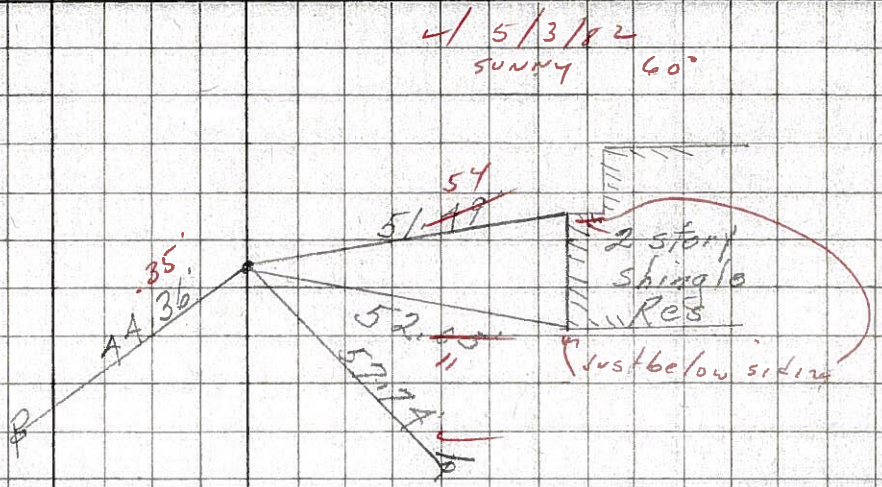 ✓ 5/3/82
SUNNY 60°
54
51.49
.35'
44.36'
2 story
Shingle
Res
52.
11
57.74'
just below siding